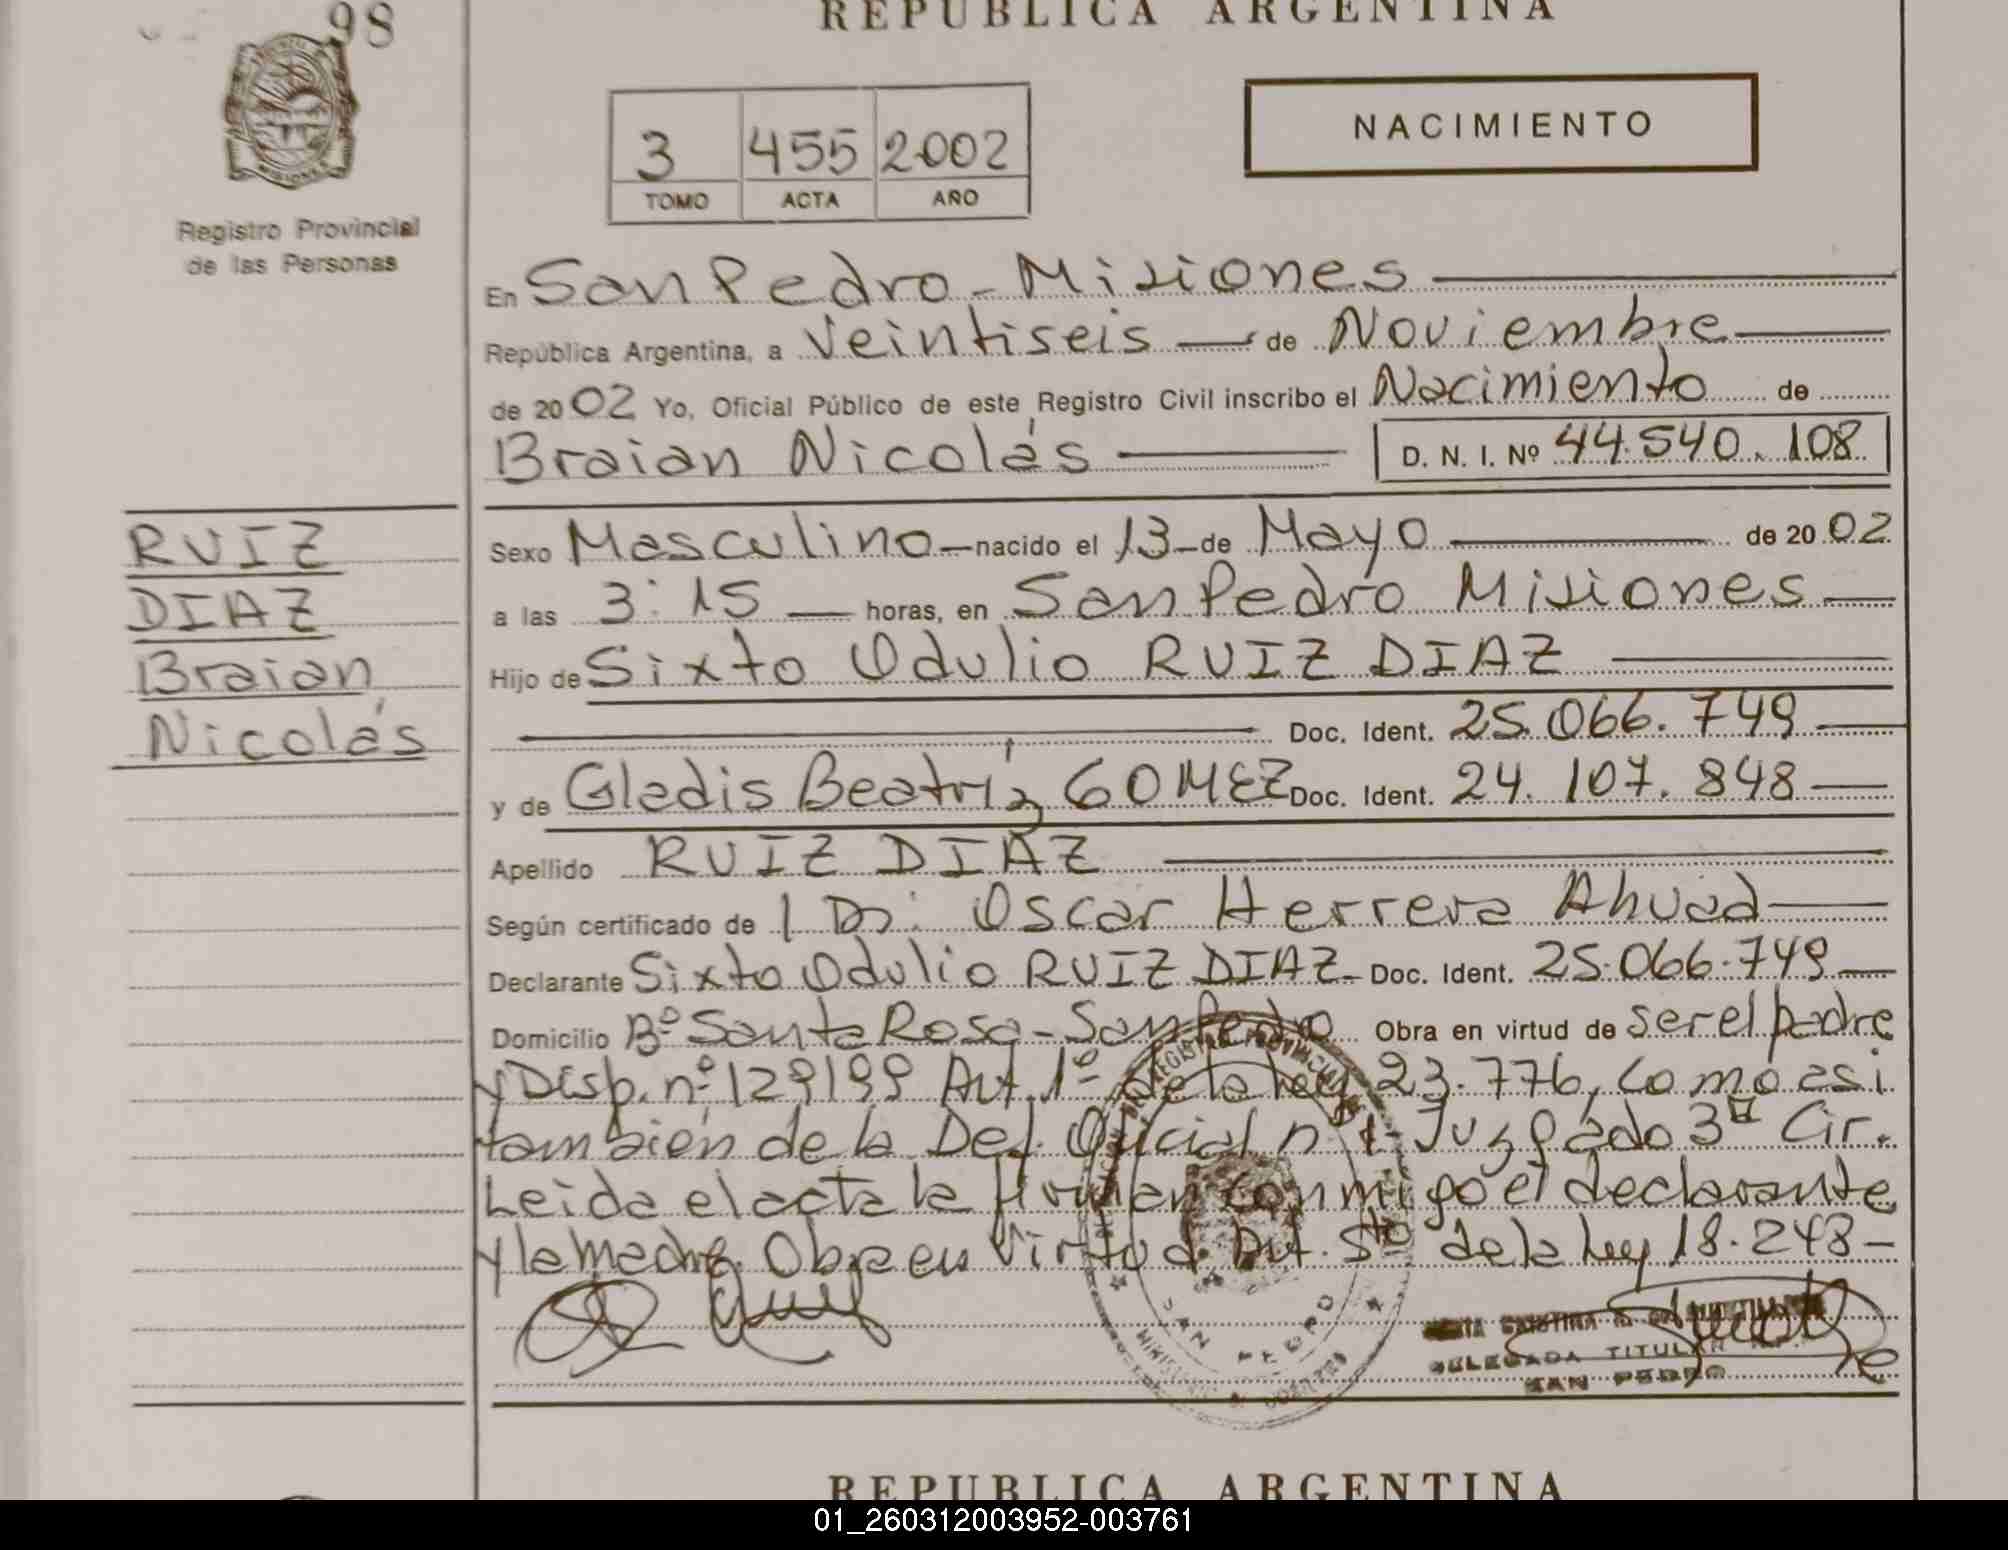 98
REPUBLICA ARGENTINA
3 455 2002
TOMO ACTA AÑO
NACIMIENTO
Registro Provincial
de las Personas
En San Pedro - Misiones
República Argentina, a Veintiseis de Noviembre
de 2002 Yo, Oficial Público de este Registro Civil inscribo el Nacimiento de
Braian Nicolás D. N. I. Nº 44.540.108
RUIZ
DIAZ
Braian
Nicolás
Sexo Masculino nacido el 13 de Mayo de 2002
a las 3:15 horas, en San Pedro Misiones
Hijo de Sixto Odulio RUIZ DIAZ
Doc. Ident. 25.066.749
y de Gladis Beatríz GOMEZ Doc. Ident. 24.107.848
Apellido RUIZ DIAZ
Según certificado de Dr. Oscar Herrera Ahuad
Declarante Sixto Odulio RUIZ DIAZ Doc. Ident. 25.066.749
Domicilio Bº Santa Rosa - San Pedro Obra en virtud de ser el padre
y Disp. nº 129199 Art. 1º de la Ley 23.776, como asi
tambien de la Def. Oficial nº 1 Juzgado 3ª Cir.
Leida el acta la firman conmigo el declarante
y la madre. Obra en Virtud Art. 5to de la Ley 18.248 -
SAN PEDRO
DELEGADA TITULAR
SAN PEDRO
REPUBLICA ARGENTINA
01_260312003952-003761